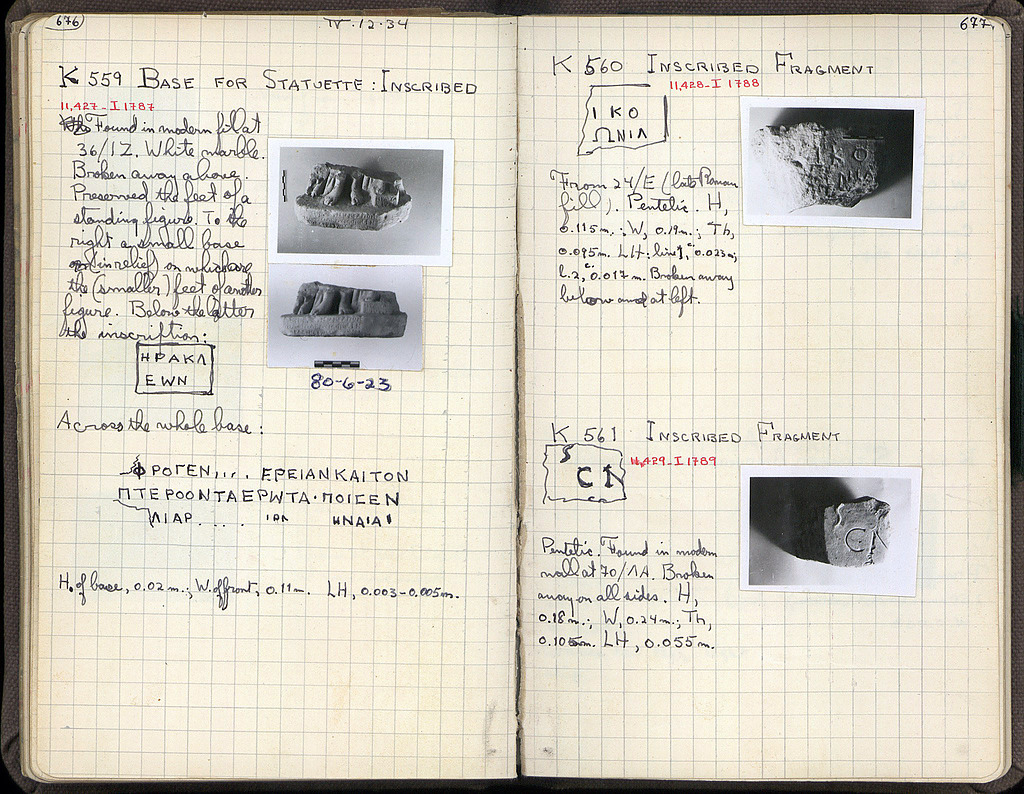 676
IV.12.34
K 559 BASE FOR STATUETTE : INSCRIBED
11,427 - I 1787
Found in modern fill at
36/ΙΖ. White marble.
Broken away above.
Preserved the feet of a
standing figure. To the
right a small base
(in relief) on which are
the (smaller) feet of another
figure. Below the latter
the inscription:
ΗΡΑΚΛ
ΕWΝ
80-6-23
Across the whole base:
ΦΡΟΓΕΝ,,.. ΕΡΕΙΑΝΚΑΙΤΟΝ
ΠΤΕΡΟΟΝΤΑΕΡWΤΑ·ΠΟΙCΕΝ
ΛΙΑΡ .... ΙΡΛ ΗΝΑΙΑΙ
H. of base, 0.02 m.; W. of front, 0.11 m. LH, 0.003-0.005 m.
677
K 560 INSCRIBED FRAGMENT
11,428 - I 1788
Ι ΚΟ
ΩΝΙΛ
From 24/Ε (late Roman
fill). Pentelic. H,
0.115 m.; W, 0.19 m.; Th,
0.095 m. LH: line 1, c. 0.023 m;
l. 2, c. 0.017 m. Broken away
below and at left.
K 561 INSCRIBED FRAGMENT
11,429 - I 1789
C Λ
Pentelic. Found in modern
wall at 70/ΛΑ. Broken
away on all sides. H,
0.18 m.; W, 0.24 m.; Th,
0.105 m. LH, 0.055 m.